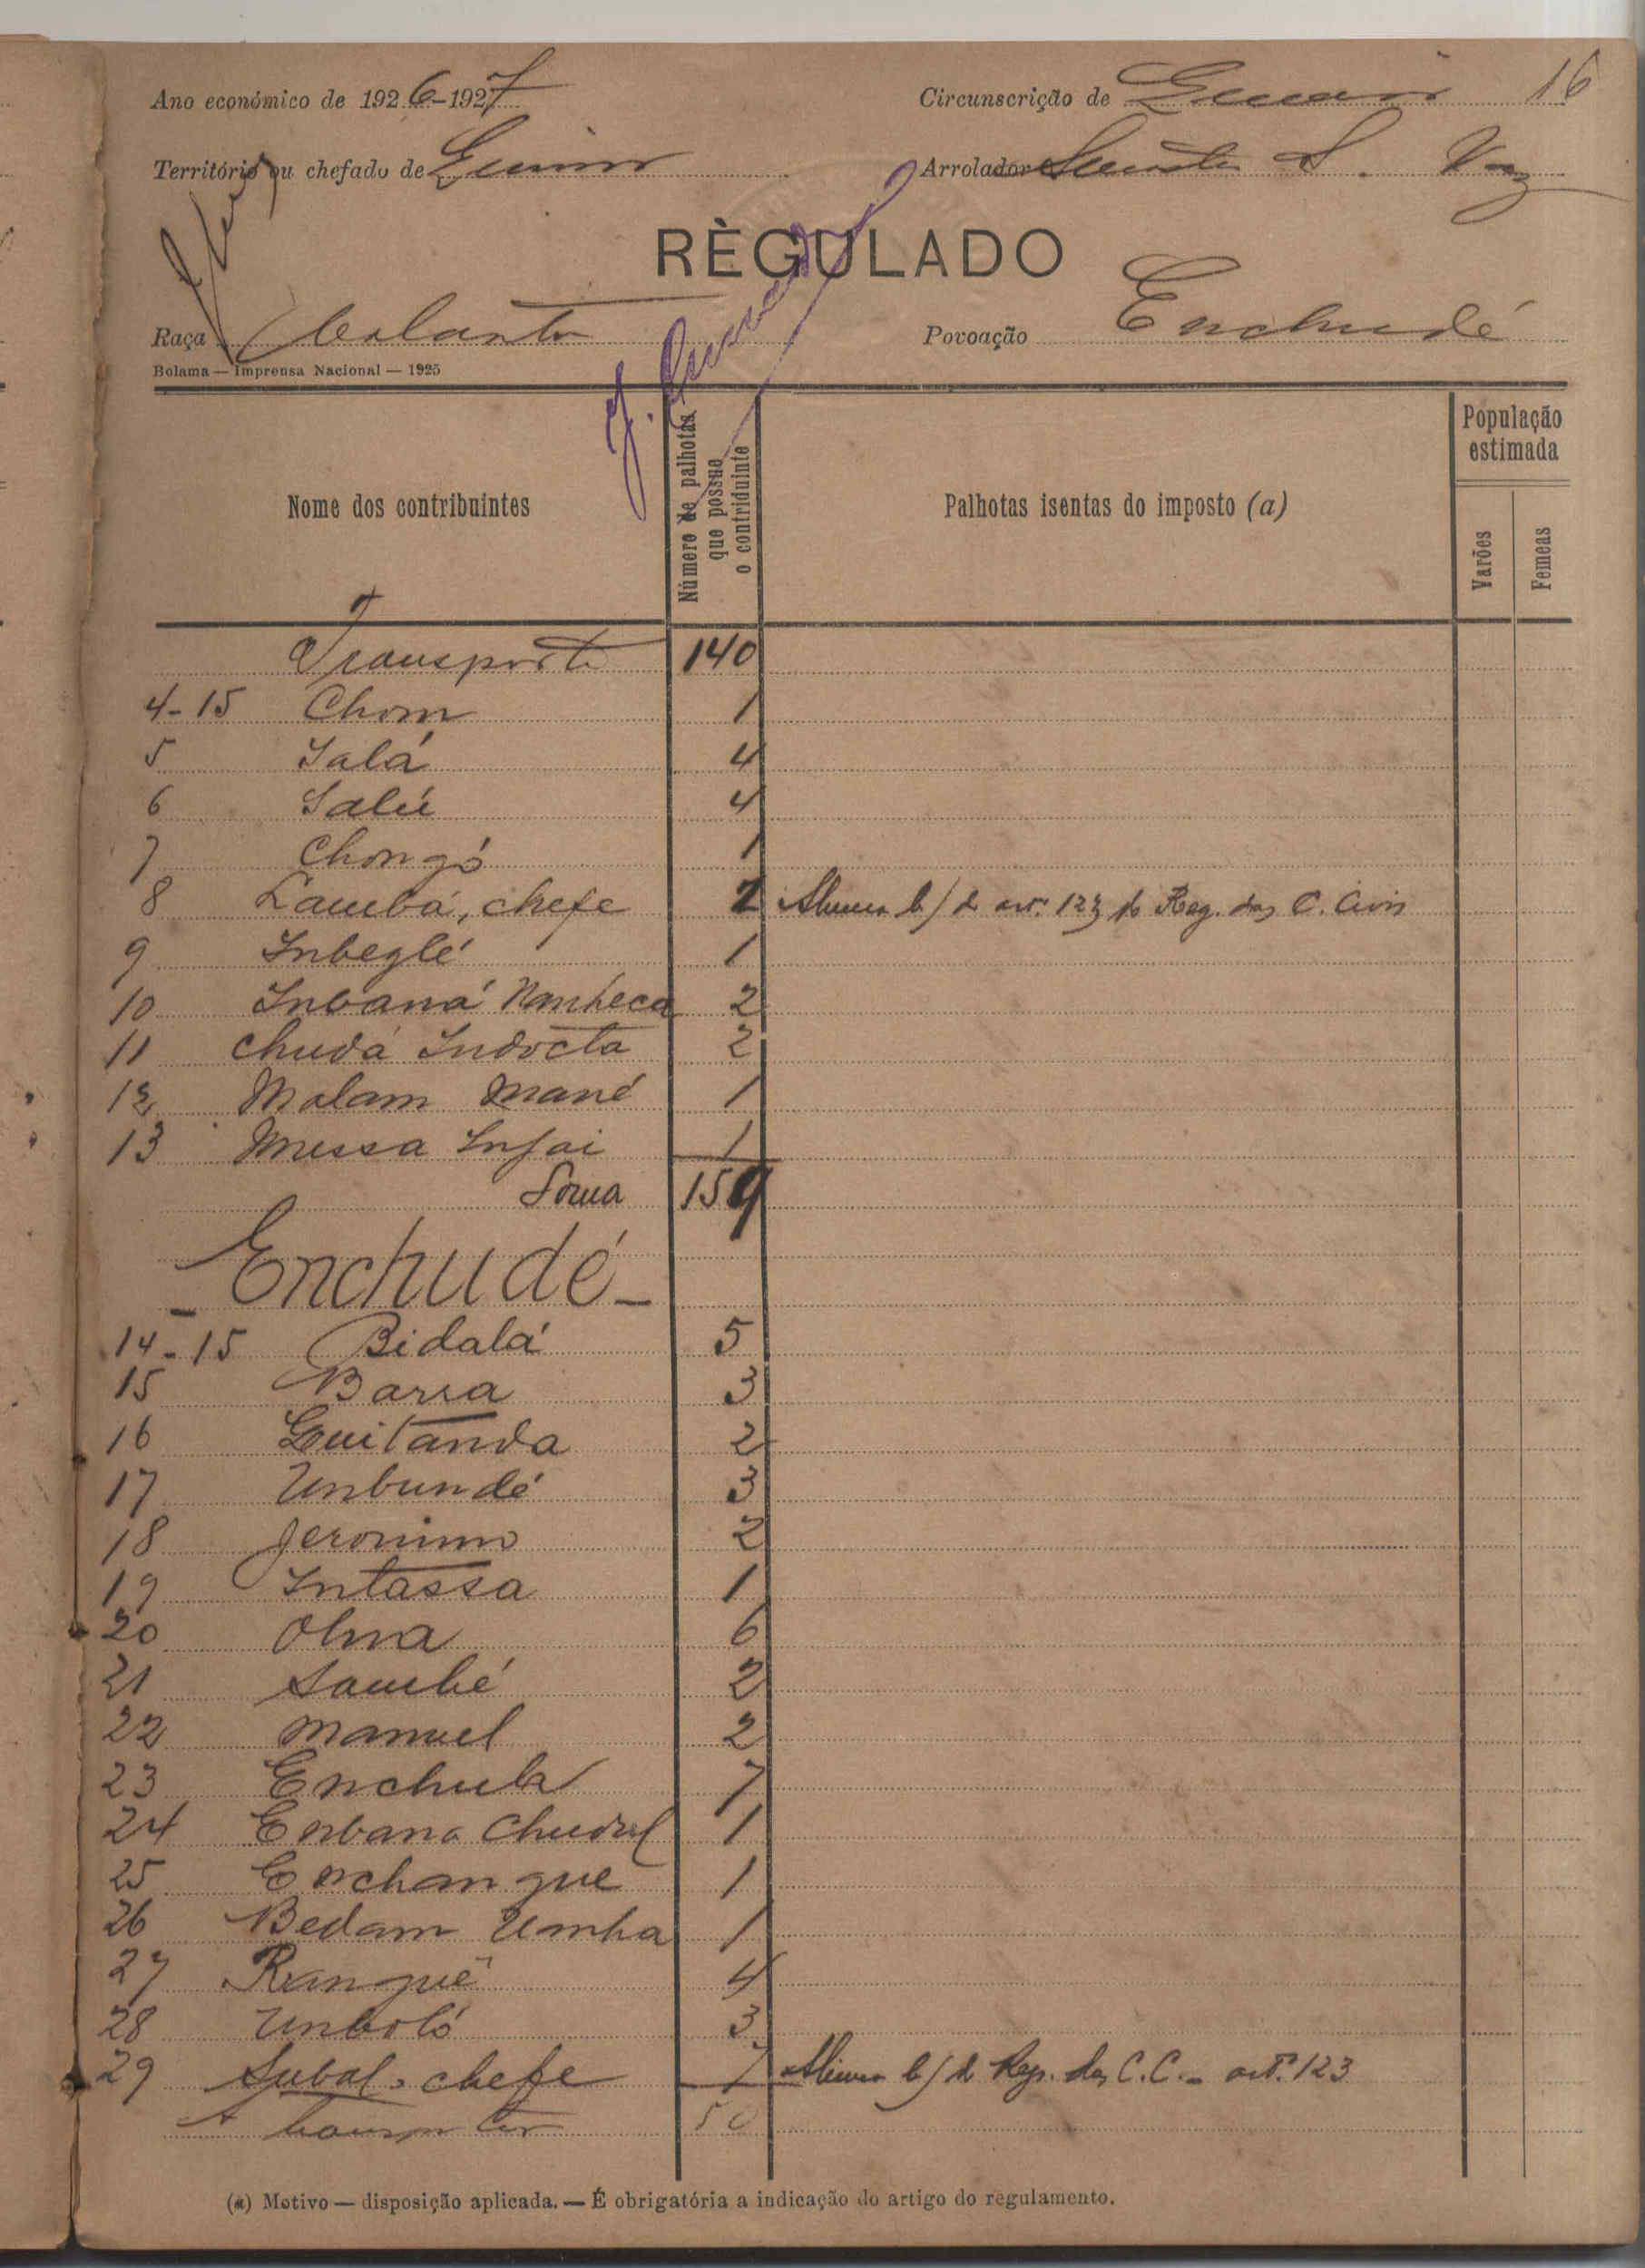 16
Ano económico de 1926-1927 Circunscrição de
Território ou chefado de Arrolador S. Vaz
RÈGULADO
Raça balanta Povoação Enchudé
Bolama — Imprensa Nacional — 1925
Nome dos contribuintes
Número de palhotas que possue o contriduinte
Palhotas isentas do imposto (a)
População estimada
Varões
Femeas
Transporte 140
4-15 Chom 1
5 Ialá 4
6 Salú 4
7 Chongó 1
8 Lambá, chefe 2 Alinea b) d art.º 123 do Reg. das C. Civis
9 Inbeglé 1
10 Inbaná Nanheca 2
11 Chudá Indocta 2
12 Malam Mané 1
13 Mussa Infai 1
Soma 159
Enchudé
14-15 Bidalá 5
15 Barra 3
16 Guitanda 2
17 Unbundé 3
18 Jeronimo 2
19 Intassa 1
20 Olna 6
21 Sambé 2
22 Manuel 2
23 Enchula 7
24 Enbana 1
25 Enchangue 1
26 Bedam Umha 1
27 Ranguê 4
28 Unboló 3
29 chefe 7 Alinea b) d Reg. das C.C. - art.º 123
A transportar 50
(a) Motivo — disposição aplicada. — É obrigatória a indicação do artigo do regulamento.